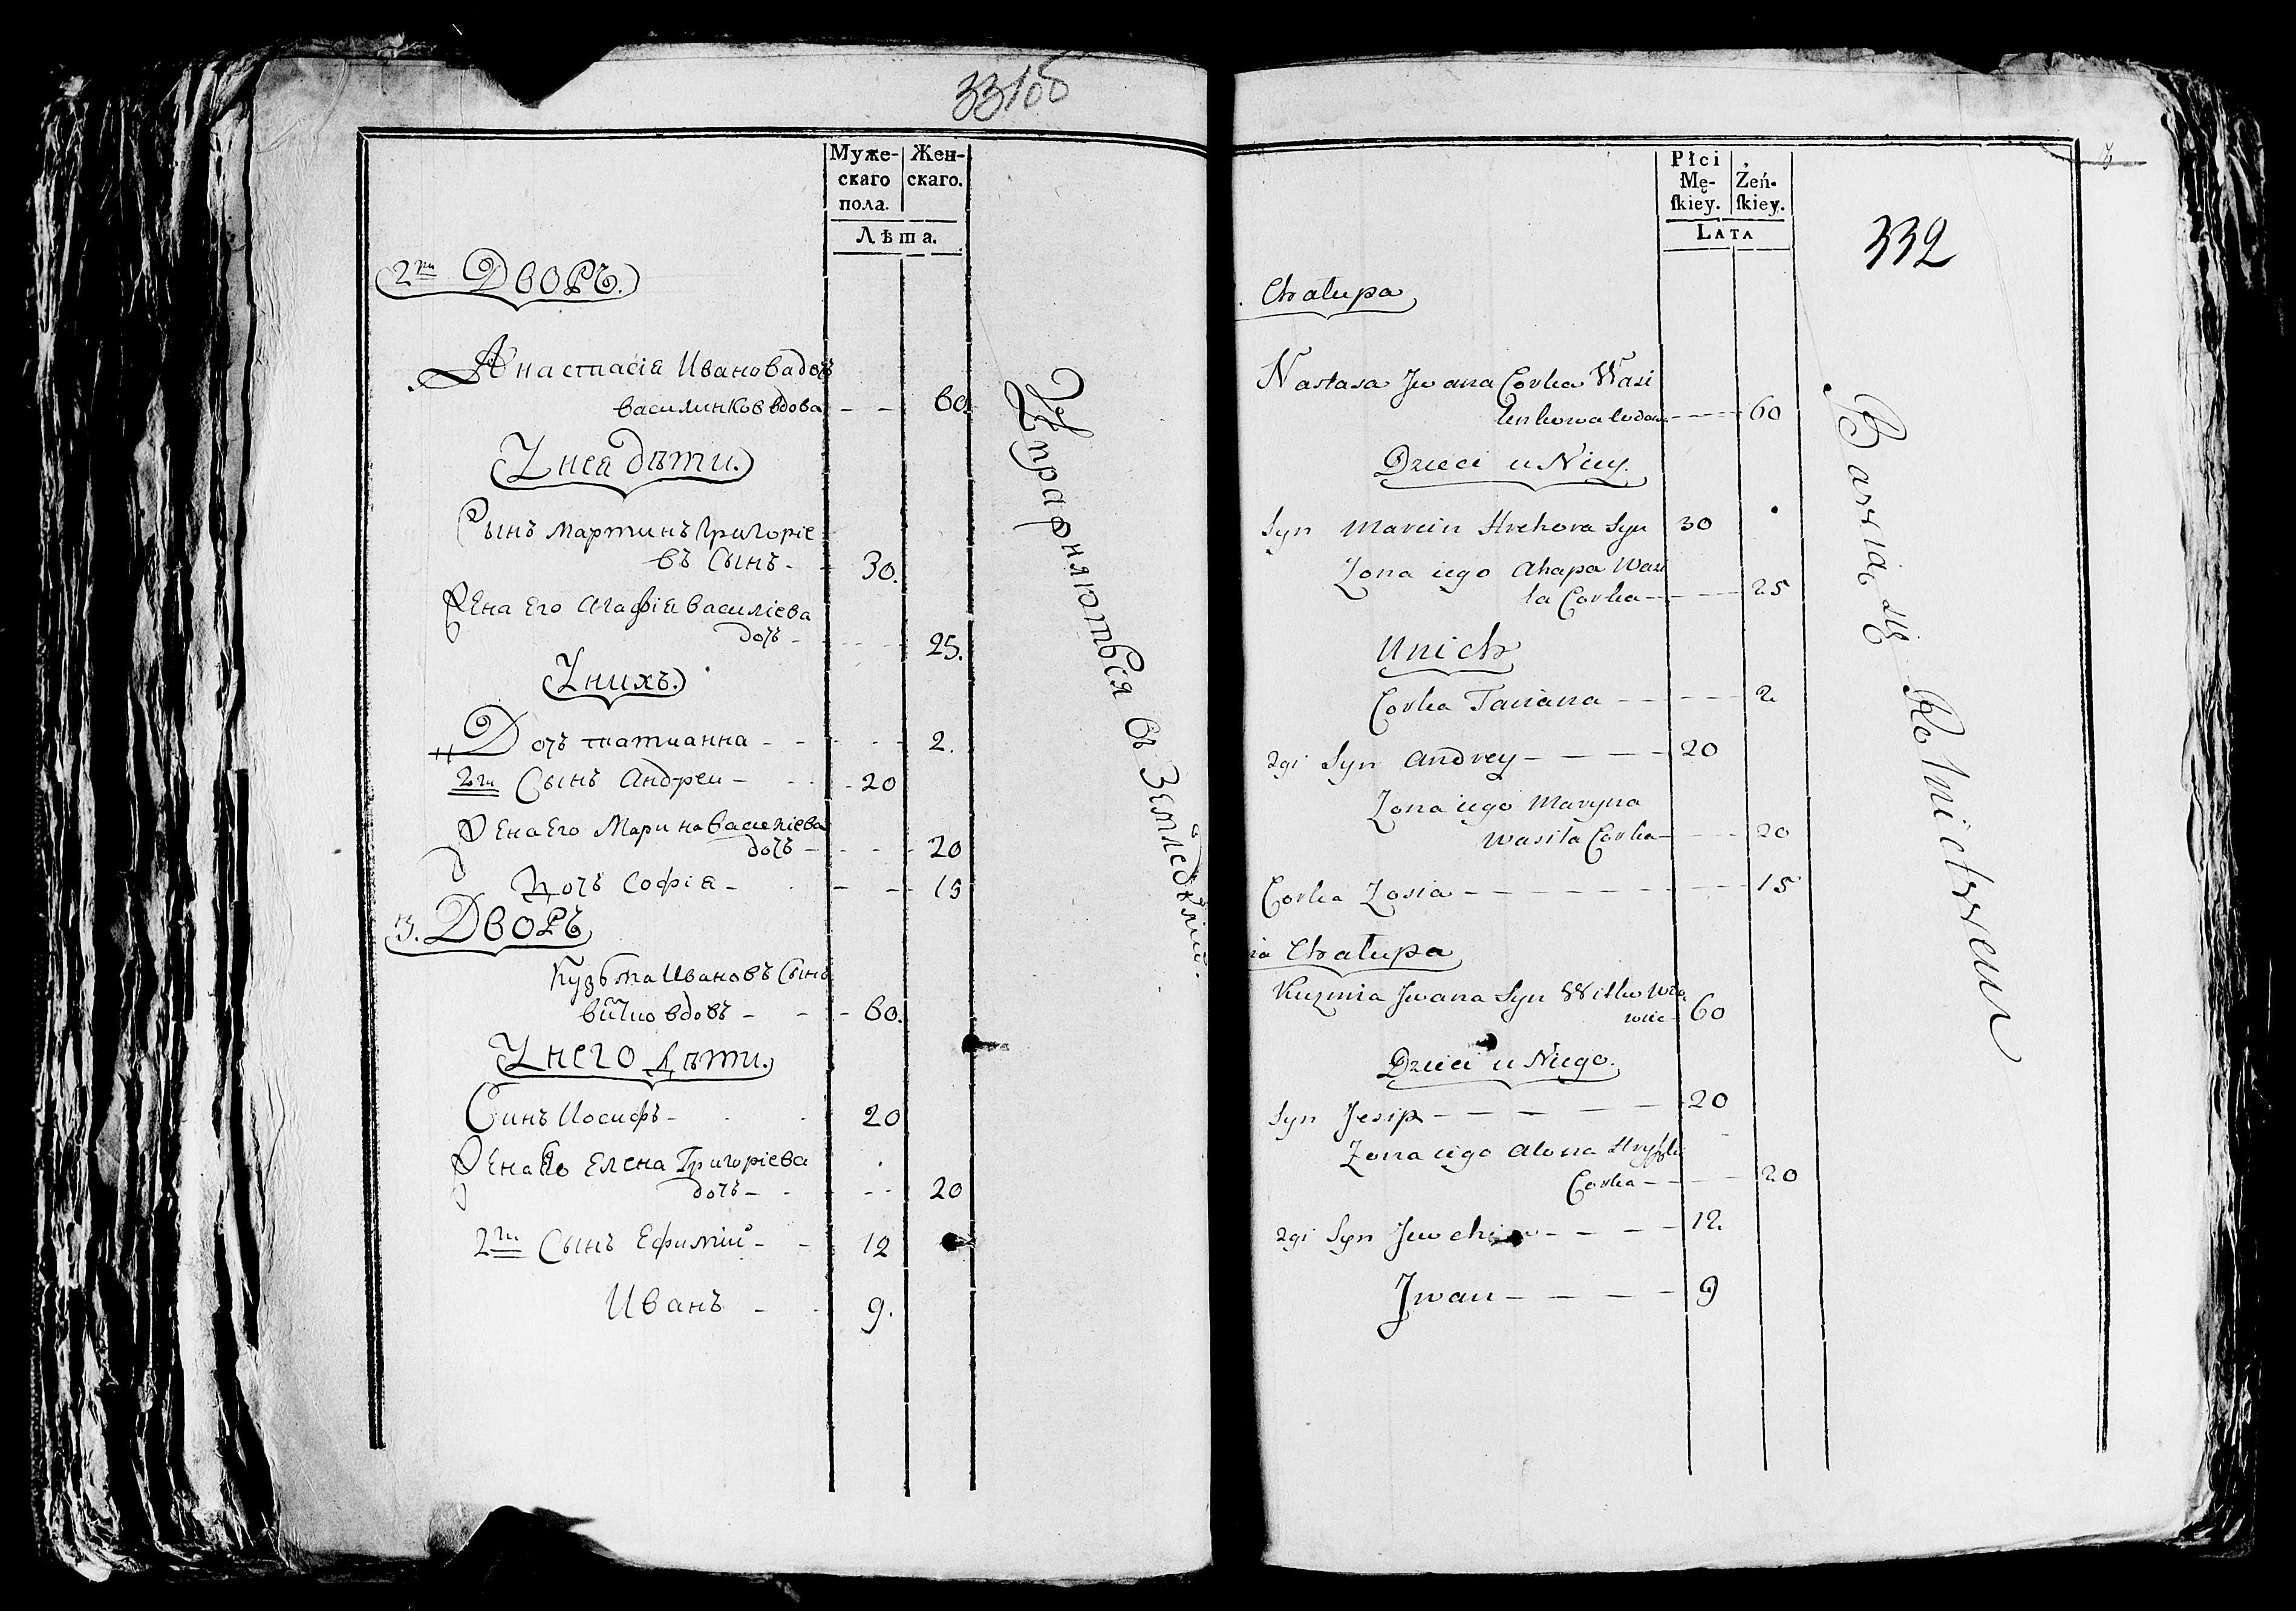 331об
Муже-
скаго
пола.
Жен-
скаго.
Лѣта.
2й Дворъ.
Анастасія Иванова дочь
василинков вдова - - 60.
У нея дѣти.
Сынъ Мартинъ Григоріе
въ Сынъ - 30.
Жена Его Агафія Василіева
дочь - - - 25.
У нихъ.
Дочь татианна - - - - 2.
2й Сынъ Андреи - - - 20
Жена Его Марина Василіева
дочь - - - - 20
Дочь Софіа - - - 15
3. Дворъ
Кузьма Ивановъ Сынъ
вдовъ - - - 60.
У него Дѣти.
Синъ Иосифъ - - - 20
Жена Его Елена Григоріева
дочь - - - - 20
2й Сынъ Ефимій - - 12
Иванъ - - 9.
Упражняютьсія въ Земледѣліи.
Płci
Mę-
skiey.
Żeń-
skiey.
Lata
332
Chałupa
Nastasa Jwana Corka Wasi
lenkowa - - - - 60
Dzieci u Niey.
Syn Marcin Hrehora Syn 30
Zona iego Ahapa Wasi
la Corka - - - - 25
U nich
Corka Taciana - - - - - 2
2gi Syn Andrey - - - - 20
Zona iego Maryna
Wasila Corka - - - - 20
Corka Zosia - - - - - - - - - 15
Chałupa
Kuzmia Jwana Syn Witko Wdo
wiec - 60
Dzieci u Niego.
Syn Jesip - - - - - - 20
Zona iego Alona Hryszki
Corka - - - - 20
2gi Syn - - - - 12.
Jwan - - - - - 9
Bawią się Rolnictwem